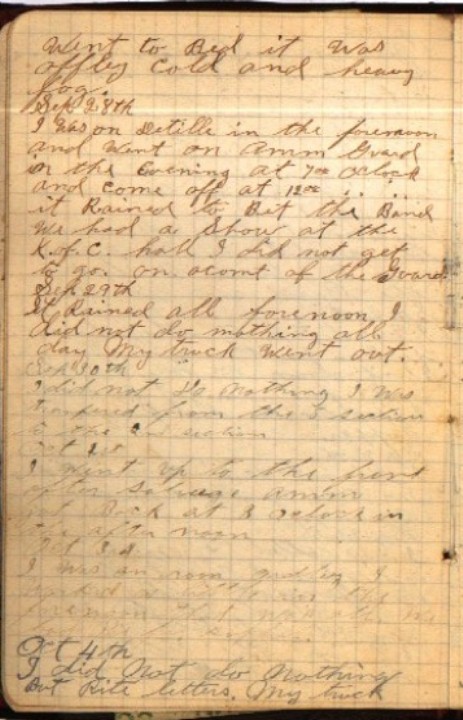 Went to Bed it was
offley Cold and heavy
fog.
Sep 28th
I was on detille in the forenoon
and Went on amm Guard
in the Evening at 7oo Oclock
and Come off at 12oo
it Rained to Bet the Band
We had a Show at the
K. of C. hall I did not get
to go. on acomt of the Guard
Sep. 29th
It Rained all forenoon I
did not do nothing all
day My truck Went out.
Sep 30th
I did not do nothing I was
from the 5 section
to the section
Oct 1st
I went up to the front
after Salvage amm
got Back at 3 Oclock in
the after noon
Oct 3d
I was on I
worked a little in the
forenoon
Oct 4th
I did Not do Nothing
But Rite letters. My truck